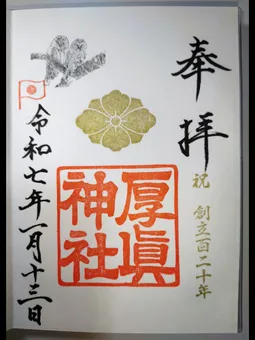 奉拝
祝 創立百二十年
厚眞神社
令和七年一月十三日